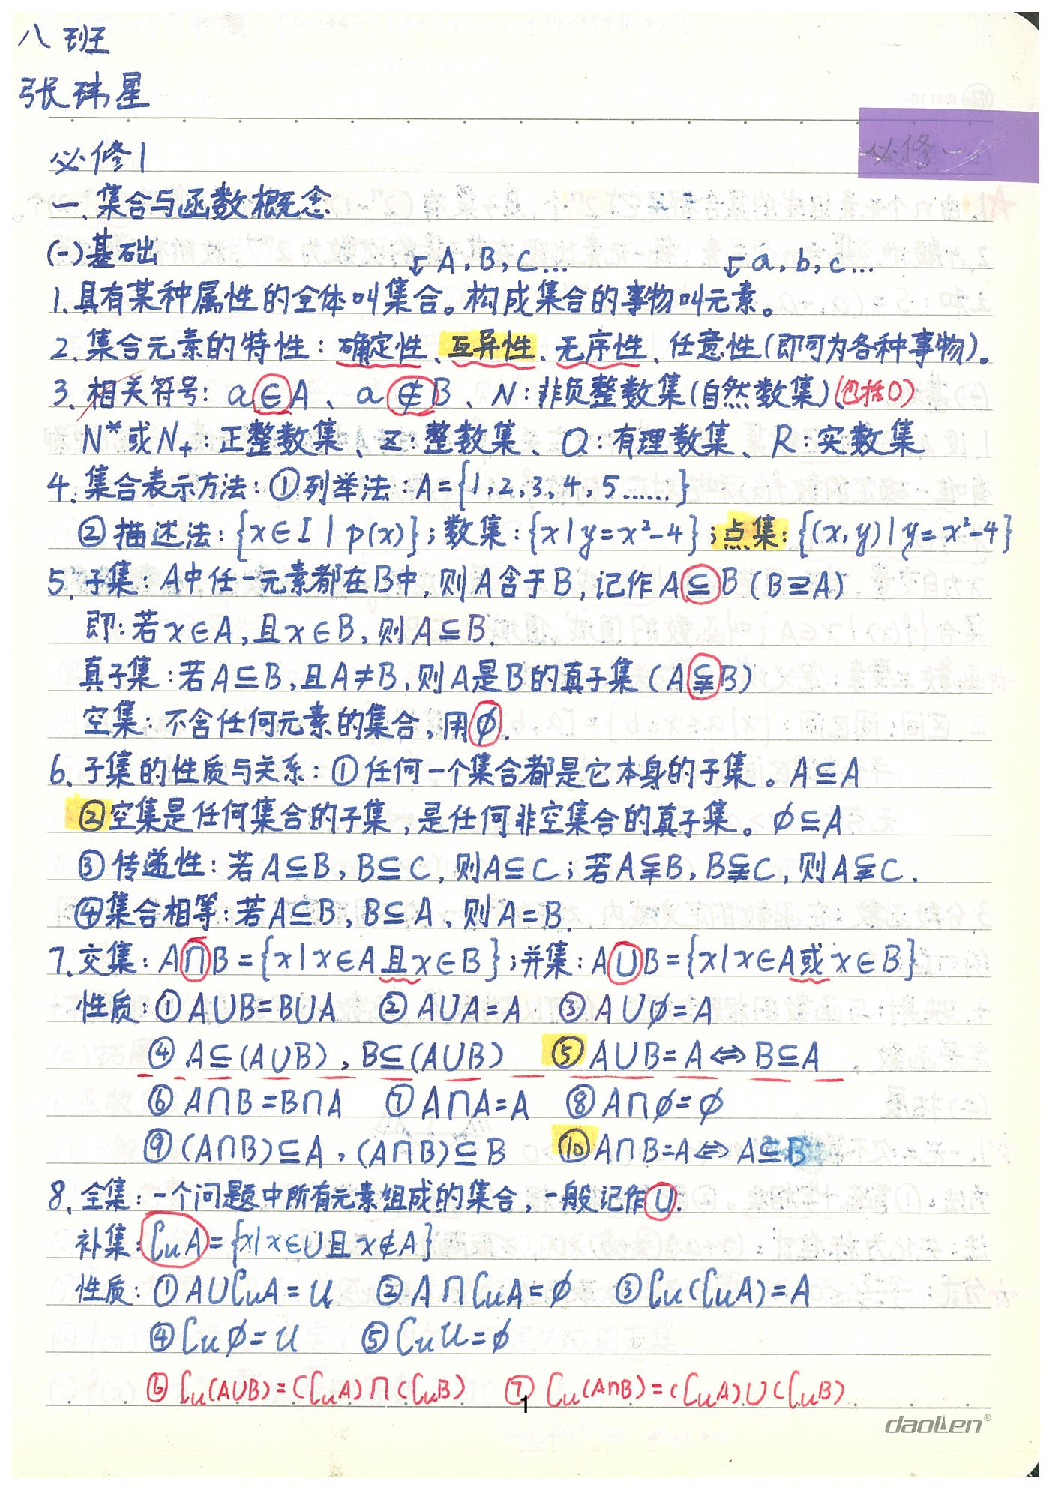 八班
张玮星
必修一
必修1
一、集合与函数概念
(一)基础 ↙A,B,C... ↙a,b,c...
1.具有某种属性的全体叫集合。构成集合的事物叫元素。
2.集合元素的特性:确定性、互异性、无序性、任意性(即可为各种事物)。
3.相关符号:a∈A、a∉B、N:非负整数集(自然数集)(包括0)
N*或N₊:正整数集、Z:整数集、Q:有理数集、R:实数集
4.集合表示方法:①列举法:A={1,2,3,4,5......}
②描述法:{x∈I|p(x)};数集:{x|y=x²-4};点集:{(x,y)|y=x²-4}
5.子集:A中任一元素都在B中,则A含于B,记作A⊆B(B⊇A)
即:若x∈A,且x∈B,则A⊆B.
真子集:若A⊆B,且A≠B,则A是B的真子集(A⫋B)
空集:不含任何元素的集合,用∅.
6.子集的性质与关系:①任何一个集合都是它本身的子集。A⊆A
②空集是任何集合的子集,是任何非空集合的真子集。∅⊆A
③传递性:若A⊆B,B⊆C,则A⊆C;若A⫋B,B⫋C,则A⫋C.
④集合相等:若A⊆B,B⊆A,则A=B.
7.交集:A∩B={x|x∈A且x∈B};并集:A∪B={x|x∈A或x∈B}
性质:①A∪B=B∪A ②A∪A=A ③A∪∅=A
④A⊆(A∪B),B⊆(A∪B) ⑤A∪B=A⇔B⊆A
⑥A∩B=B∩A ⑦A∩A=A ⑧A∩∅=∅
⑨(A∩B)⊆A,(A∩B)⊆B ⑩A∩B=A⇔A⊆B
8.全集:一个问题中所有元素组成的集合,一般记作U.
补集:∁uA={x|x∈U且x∉A}
性质:①A∪∁uA=U ②A∩∁uA=∅ ③∁u(∁uA)=A
④∁u∅=U ⑤∁uU=∅
⑥∁u(A∪B)=(∁uA)∩(∁uB) ⑦∁u(A∩B)=(∁uA)∪(∁uB)
1
daolen®